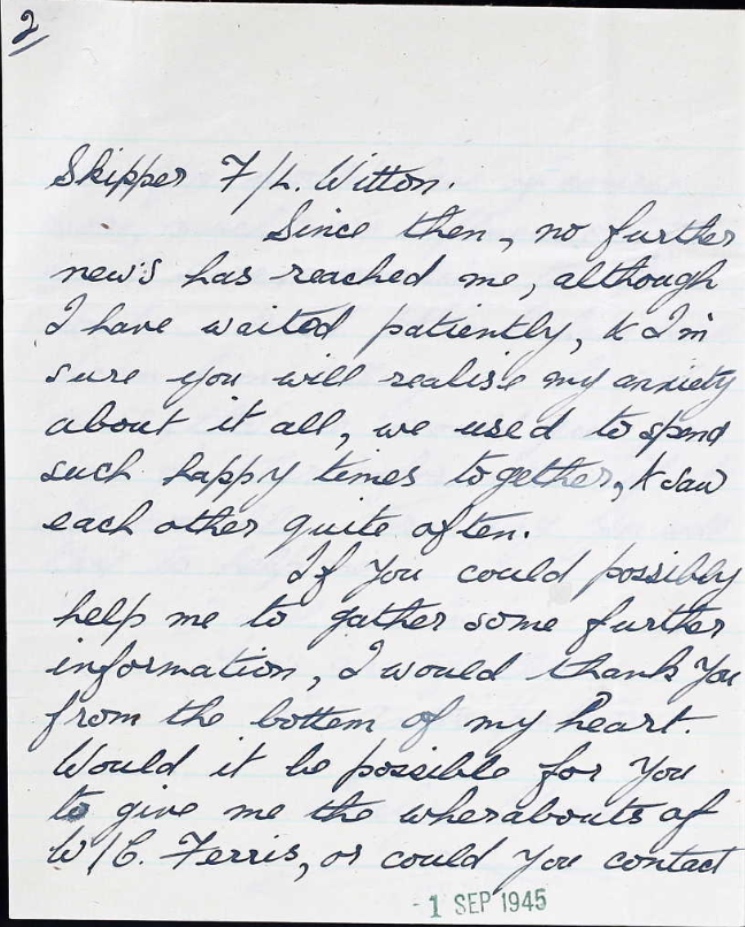 2
Skipper F/L. Witton.
Since then, no further
new's has reached me, although
I have waited patiently, & I'm
sure you will realise my anxiety
about it all, we used to spend
such happy times together, & saw
each other quite often.
If you could possibly
help me to gather some further
information, I would thank you
from the bottom of my heart.
Would it be possible for you
to give me the wherabouts of
W/C. Ferris, or could you contact
- 1 SEP 1945